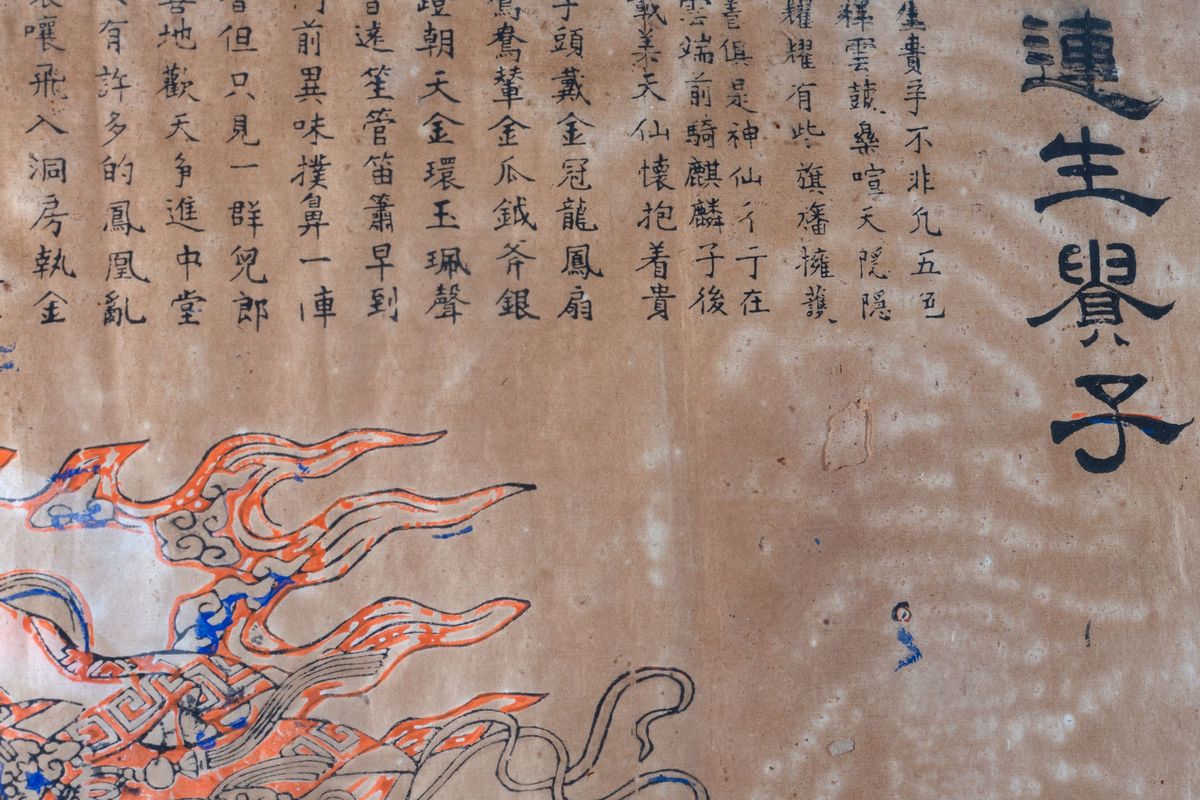 連生貴子
生貴子不非凡五色
祥雲鼓樂喧天隱隱
耀耀有些旗旛擁護
蓋俱是神仙行行在
雲端前騎麒麟子後
載美天仙懷抱着貴
子頭戴金冠龍鳳扇
鴛鴦輦金瓜鉞斧銀
蹬朝天金環玉珮聲
遠笙管笛簫早到
前異味撲鼻一陣
但只見一群兒郎
喜地歡天爭進中堂
有許多的鳳凰亂
嚷飛入洞房執金